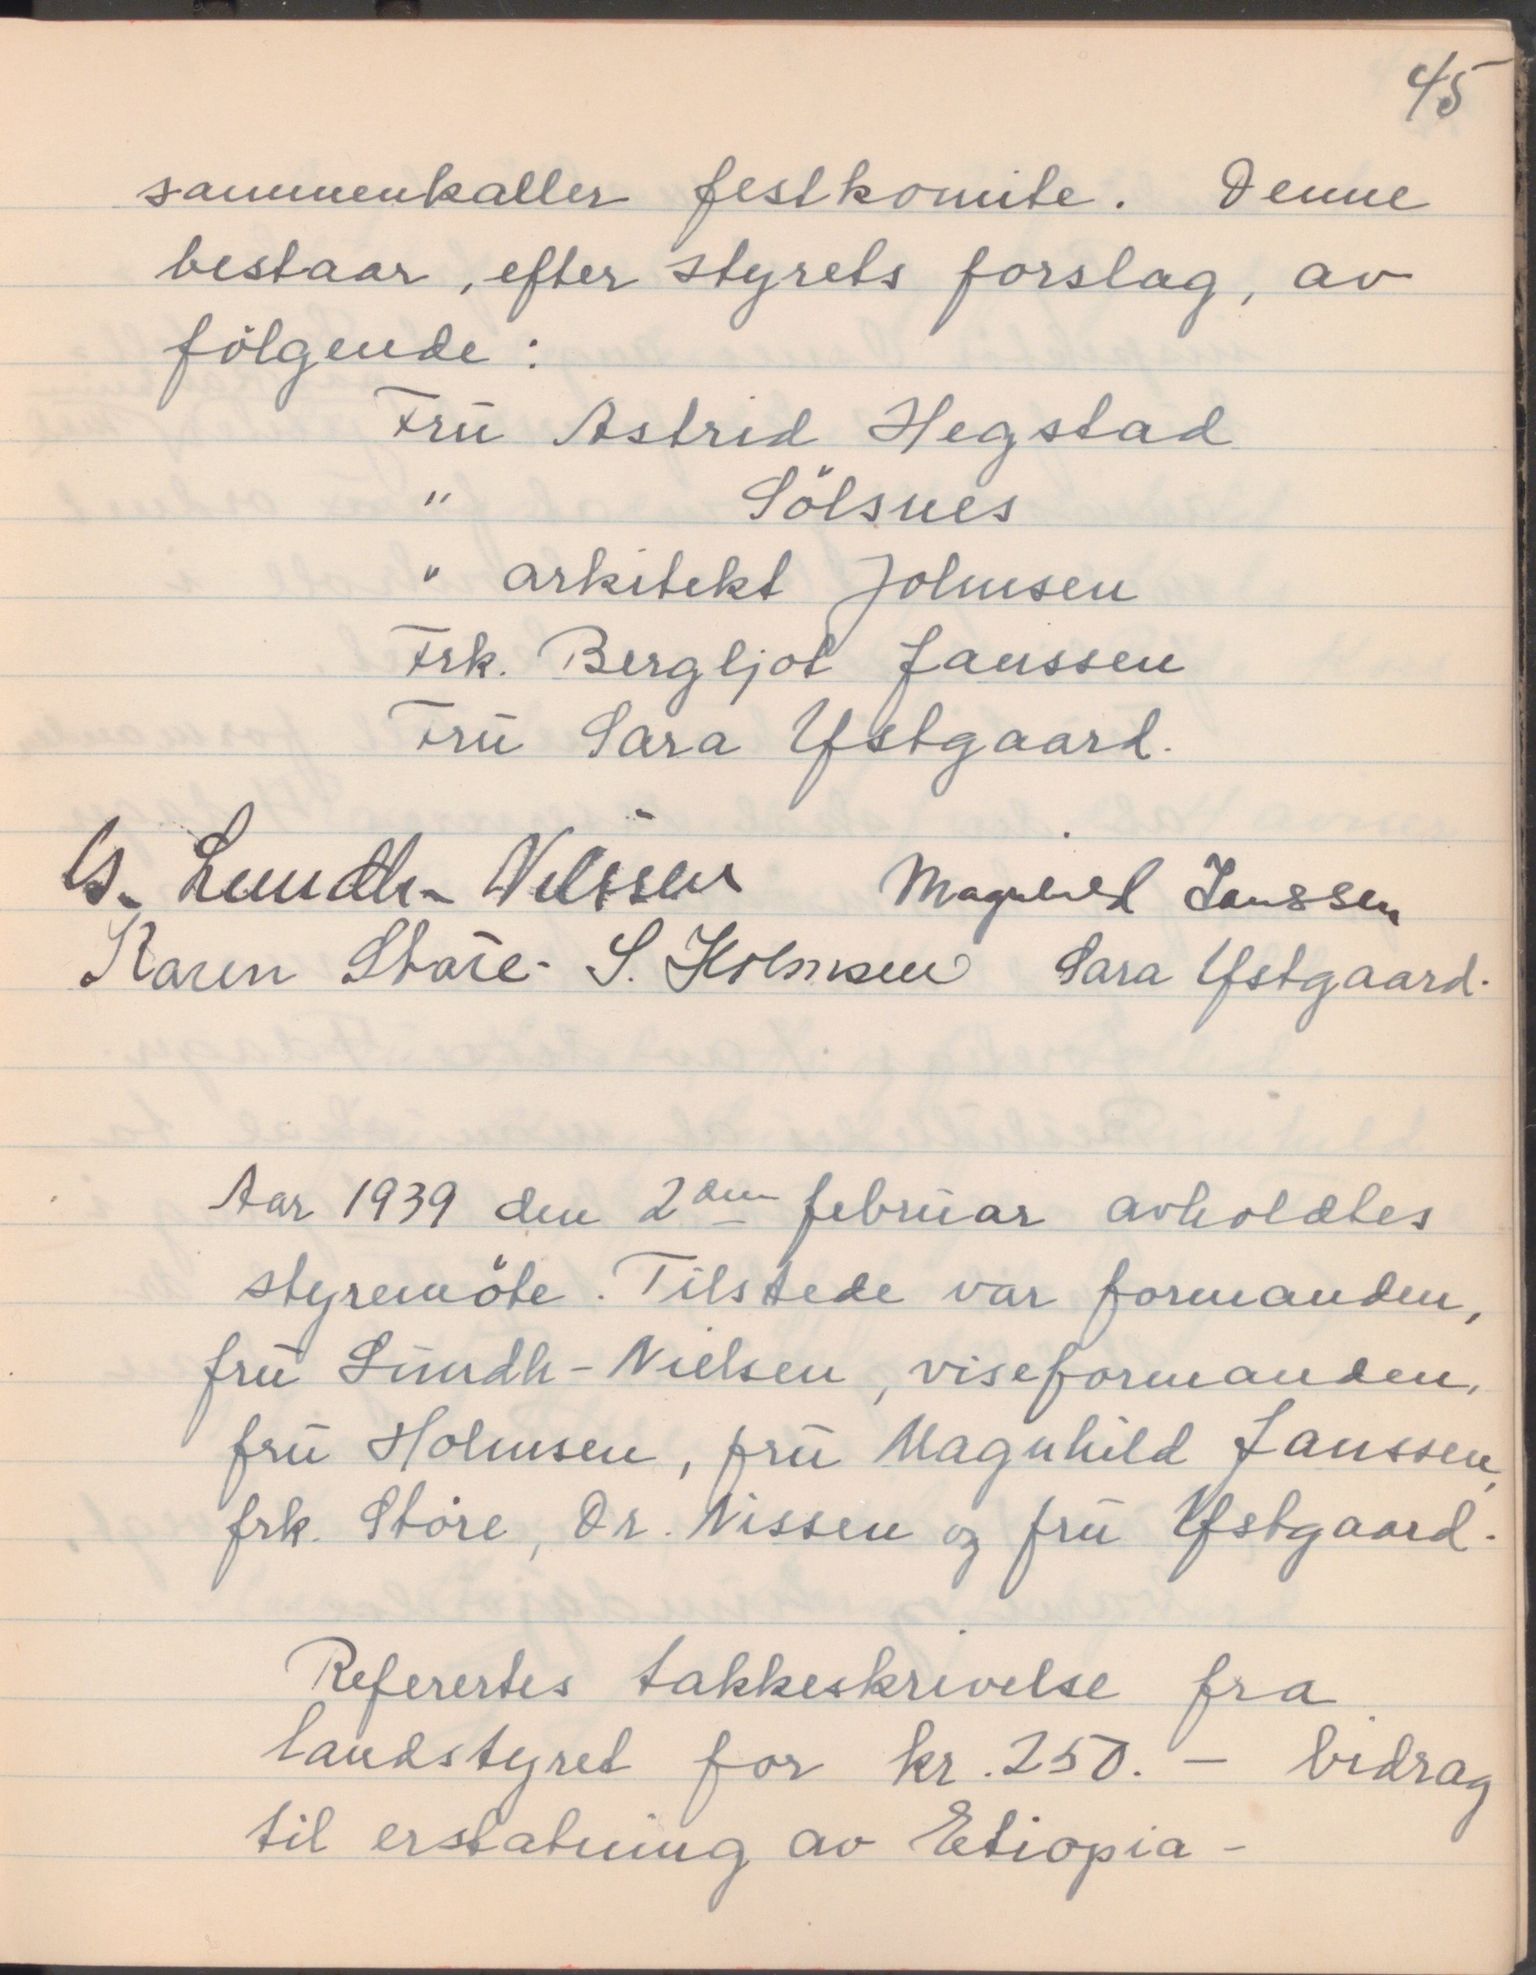 45
sammenkaller festkomite. Denne
bestaar, efter styrets forslag, av
fölgende:
Fru Astrid Hegstad
" Sölsnes
" arkitekt Johnsen
Frk. Bergljot Janssen
Fru Sara Ystgaard.
Lundh-Nilssen Magnhild Janssen
Karen Støre. S. Holmsen Sara Ystgaard.
Aar 1939 den 2den februar avholdtes
styremöte. Tilstede var formanden,
fru Lundh-Nielsen, viseformanden,
fru Holmsen, fru Magnhild Janssen,
frk. Störe, Dr. Nissen og fru Ystgaard.
Referertes takkeskrivelse fra
landstyret for kr. 250.- bidrag
til erstatning av Etiopia-